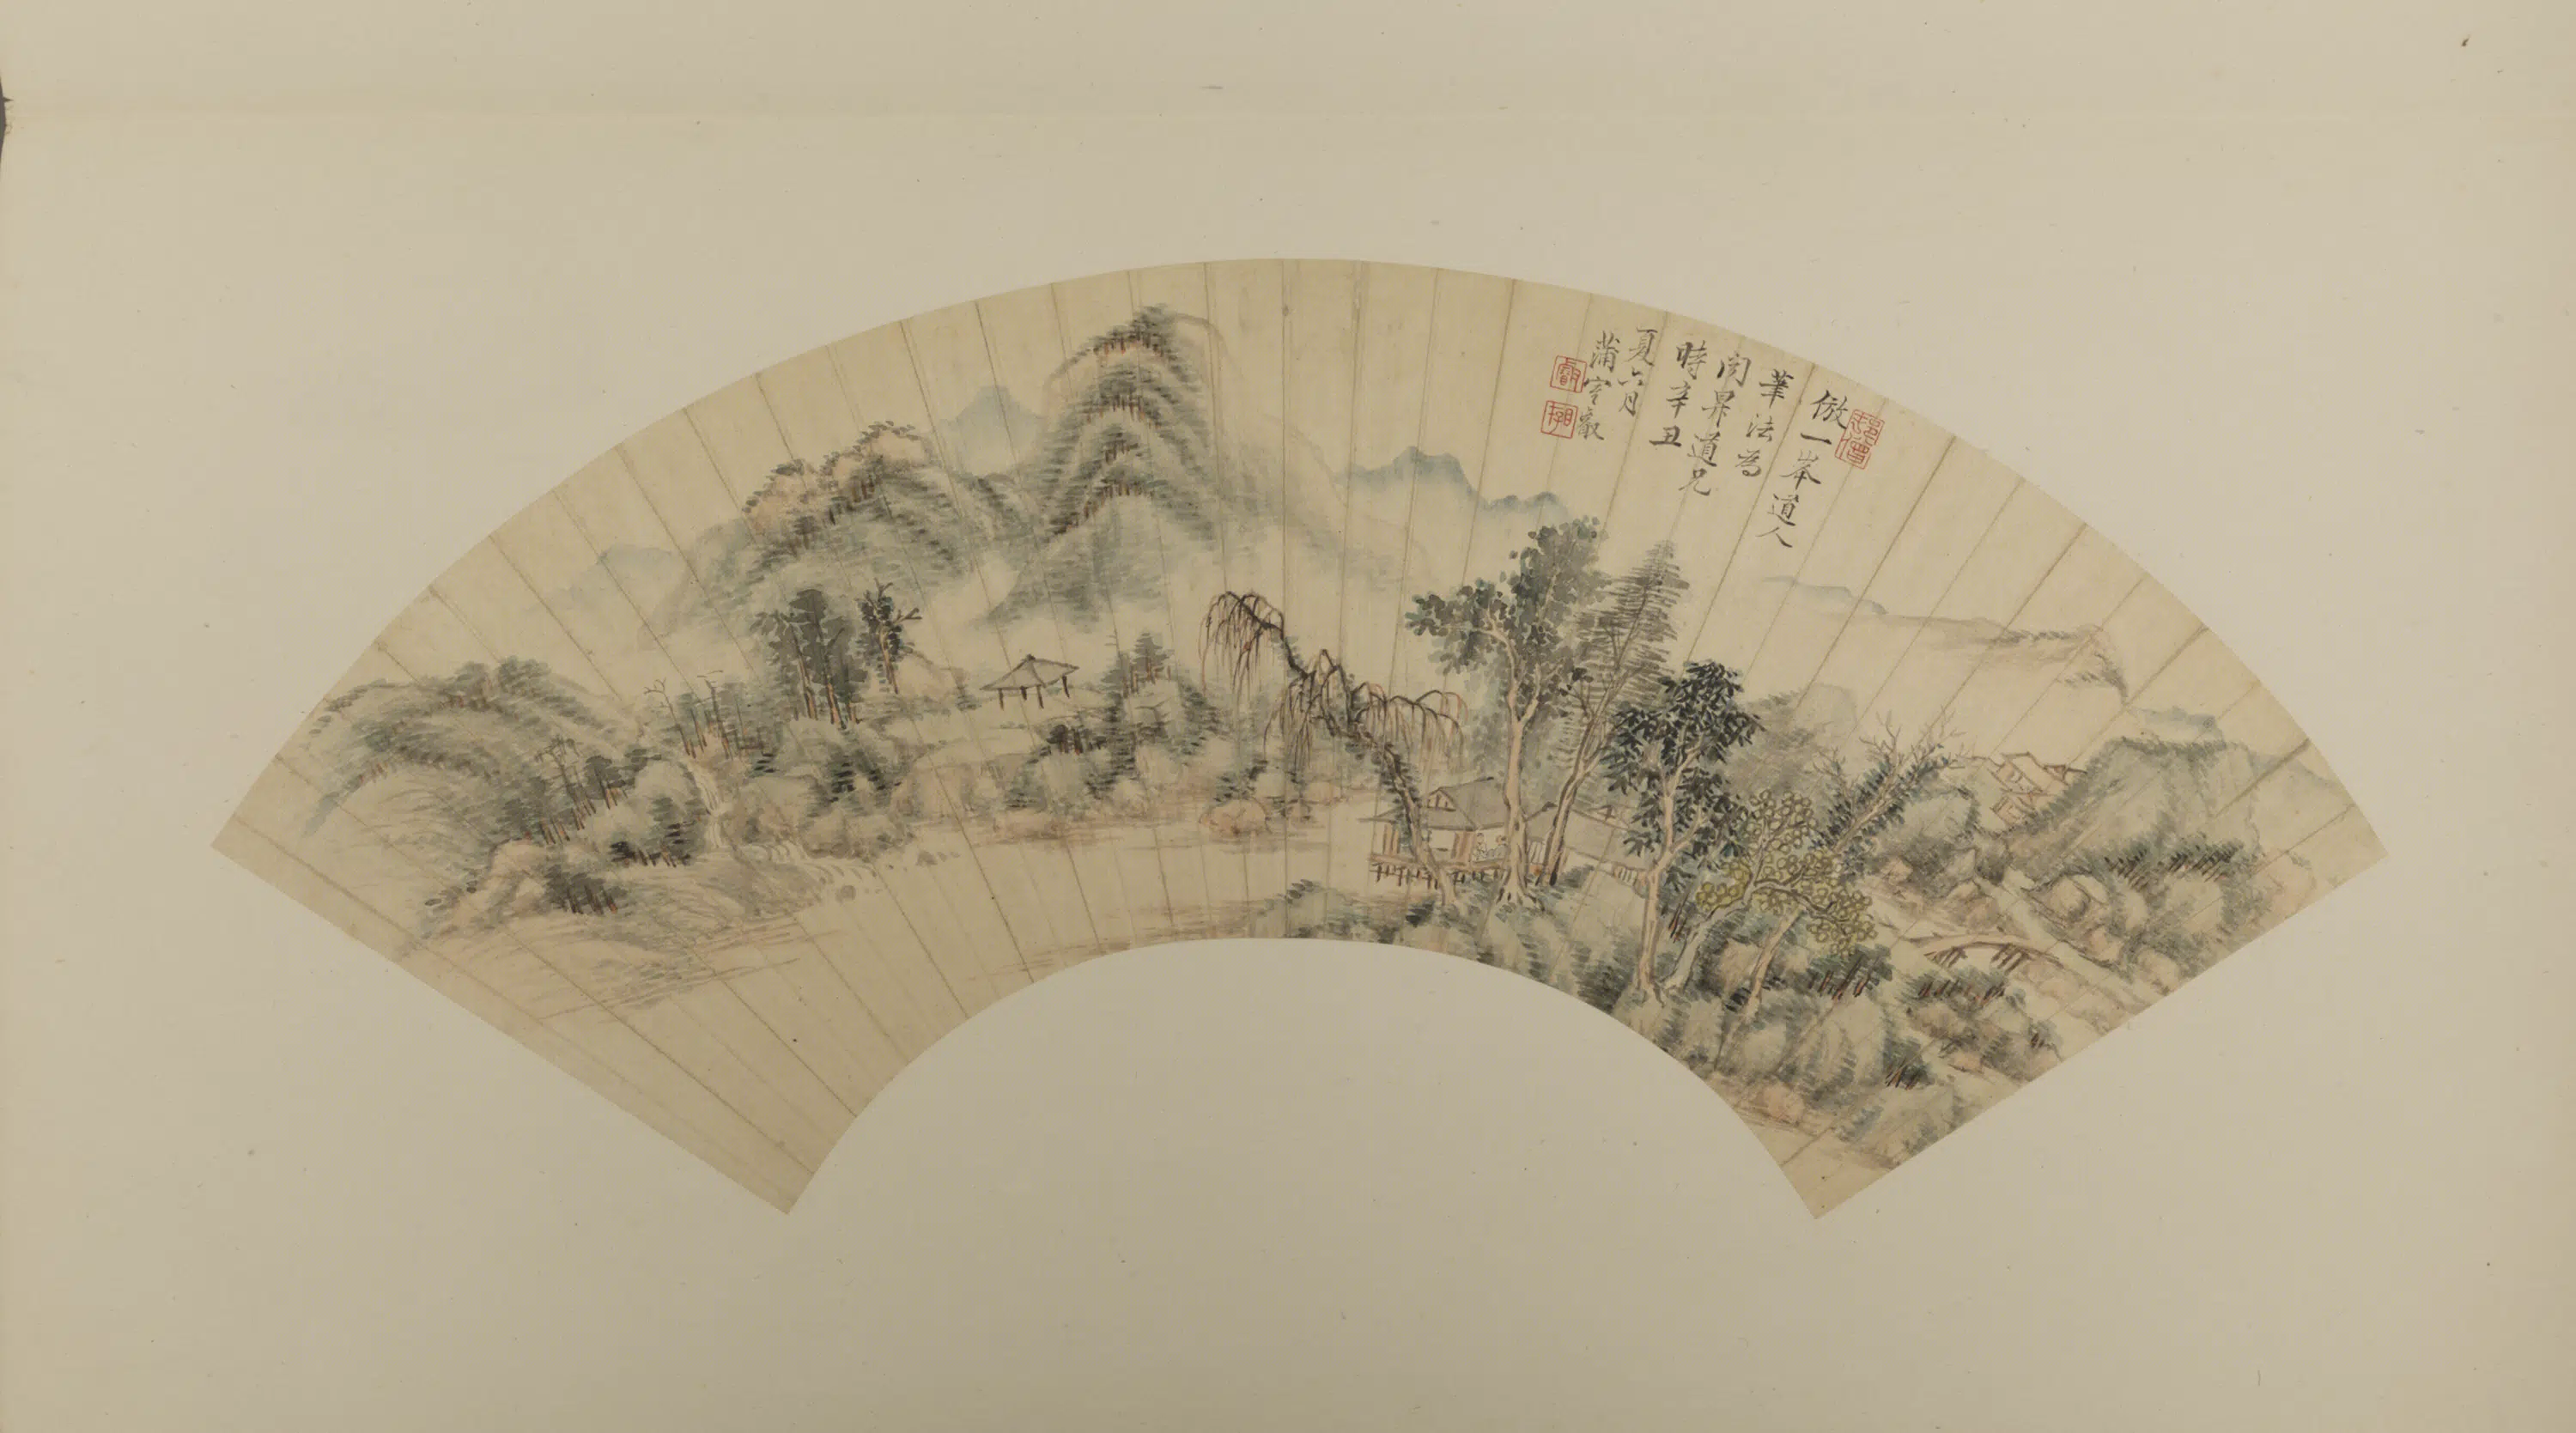 倣一峯道人
筆法為
闵昇道兄
時辛丑
夏六月
蒲室叡